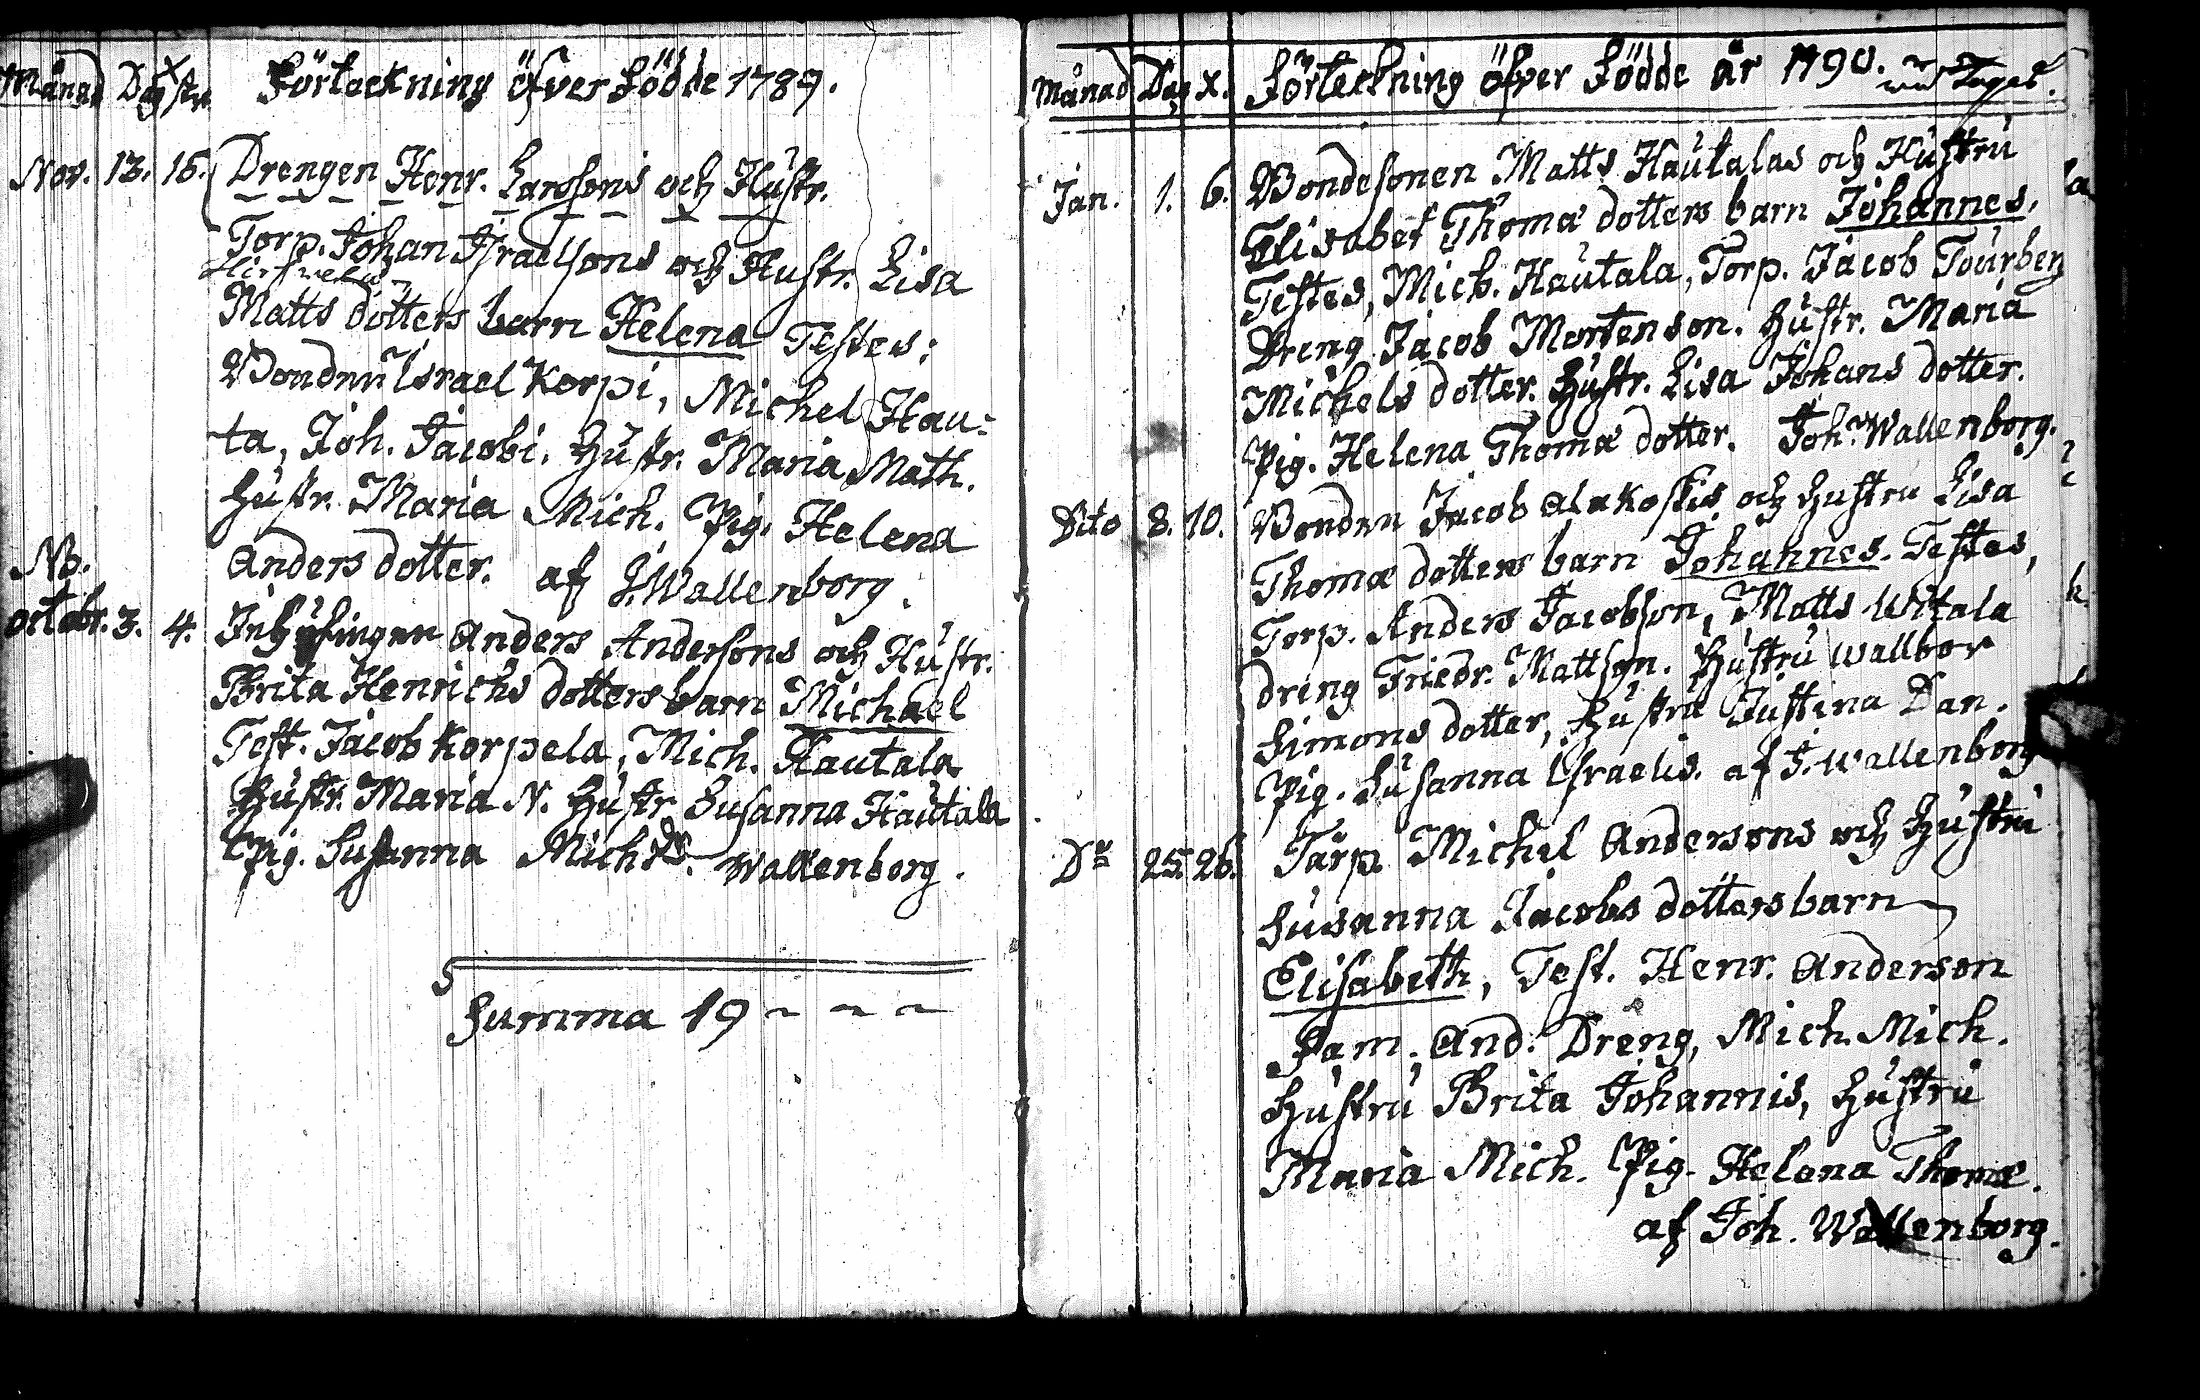 Månad Dag Xstn Förteckning öfver Födde 1789.
Nov. 13. 15. Drengen Henr. Larssons och Hustr.
Torp. Johan Israelsons och Hustr. Lisa
Matts dotters barn Helena Testes:
Bonden Israel Korpi, Michel Hau-
ta, Joh. Jacobi. Hustr. Maria Math.
Hustr. Maria Mich. Pig. Helena
Anders dotter. af J. Wallenborg.
Nb.
Octobr. 3. 4. Inhysingen Anders Andersons och Hustr.
Brita Henrichs dotters barn Michael
Test. Jacob Korpela, Mich. Hautala
Hustr. Maria N. Hustr Susanna Hautala
Pig. Susanna Mich Ds. Wallenborg.
Summa 19 - - -
Månad Dag X. Förteckning öfver Födde år 1790.
Jan. 1. 6. Bondesonen Matts Hautalas och Hustru
Elisabet Thomæ dotters barn Johannes.
Testes, Mich. Hautala, Torp. Jacob Tourben
Dreng Jacob Mortenson. Hustr. Maria
Michels dotter. Hustr. Lisa Johans dotter.
Pig. Helena Thomæ dotter. Joh. Wallenborg.
Dito 8. 10. Bonden Jacob Alakoskis och Hustru Lisa
Thomæ dotters barn Johannes. Testes,
Torp. Anders Jacobson, Matts Witala
dreng Friedr. Mattson. Hustru Wallbor
Simons dotter, Hustru Justina Dan.
Pig. Susanna Israelis. af J. Wallenborg
Do 25. 26. Tårp. Michel Andersons och Hustru
Susanna Jacobs dotters barn
Elisabeth, Test. Henr. Anderson
Sam. And. Dreng, Mich. Mich.
Hustru Brita Johannis, Hustru
Maria Mich. Pig. Helena Thomæ.
af Joh. Wallenborg.